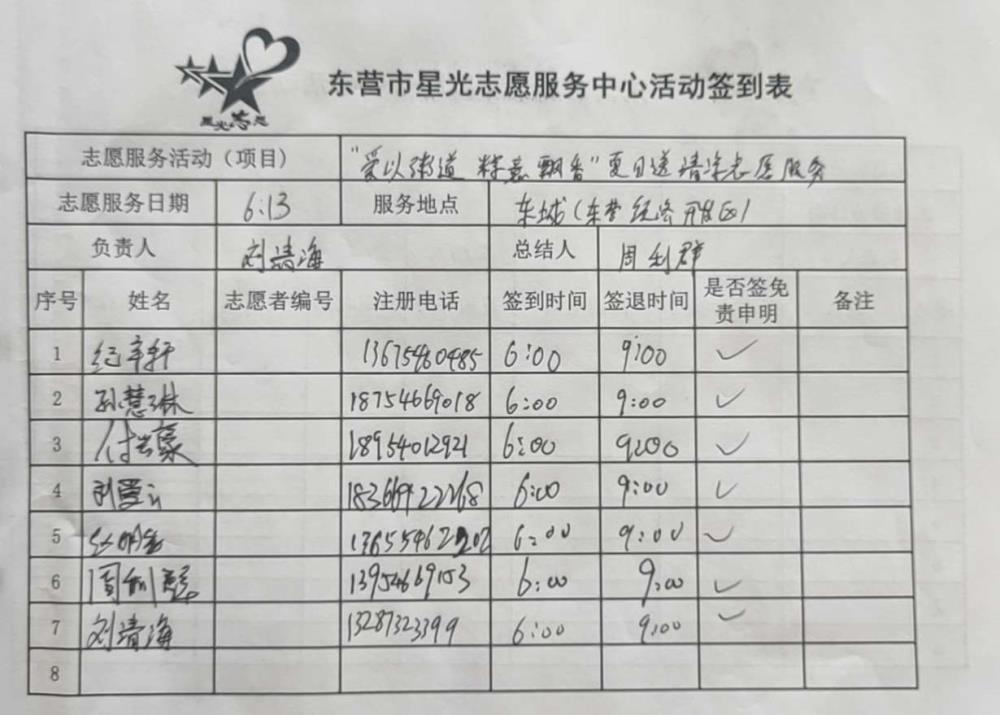 星光志愿
东营市星光志愿服务中心活动签到表
志愿服务活动（项目） "爱以街道 粽意飘香"夏日送清凉志愿服务
志愿服务日期 6.13 服务地点 东城(东营经济开发区)
负责人 刘清海 总结人 周利群
序号 姓名 志愿者编号 注册电话 签到时间 签退时间 是否签免责申明 备注
1 纪辛轩 13675460485 6:00 9:00 ✓
2 孙慧琳 18754669018 6:00 9:00 ✓
3 付兴豪 18954012921 6:00 9:00 ✓
4 刘爱云 18366922268 6:00 9:00 ✓
5 13655462202 6:00 9:00 ✓
6 周利群 13954669153 6:00 9:00 ✓
7 刘清海 13287323399 6:00 9:00 ✓
8